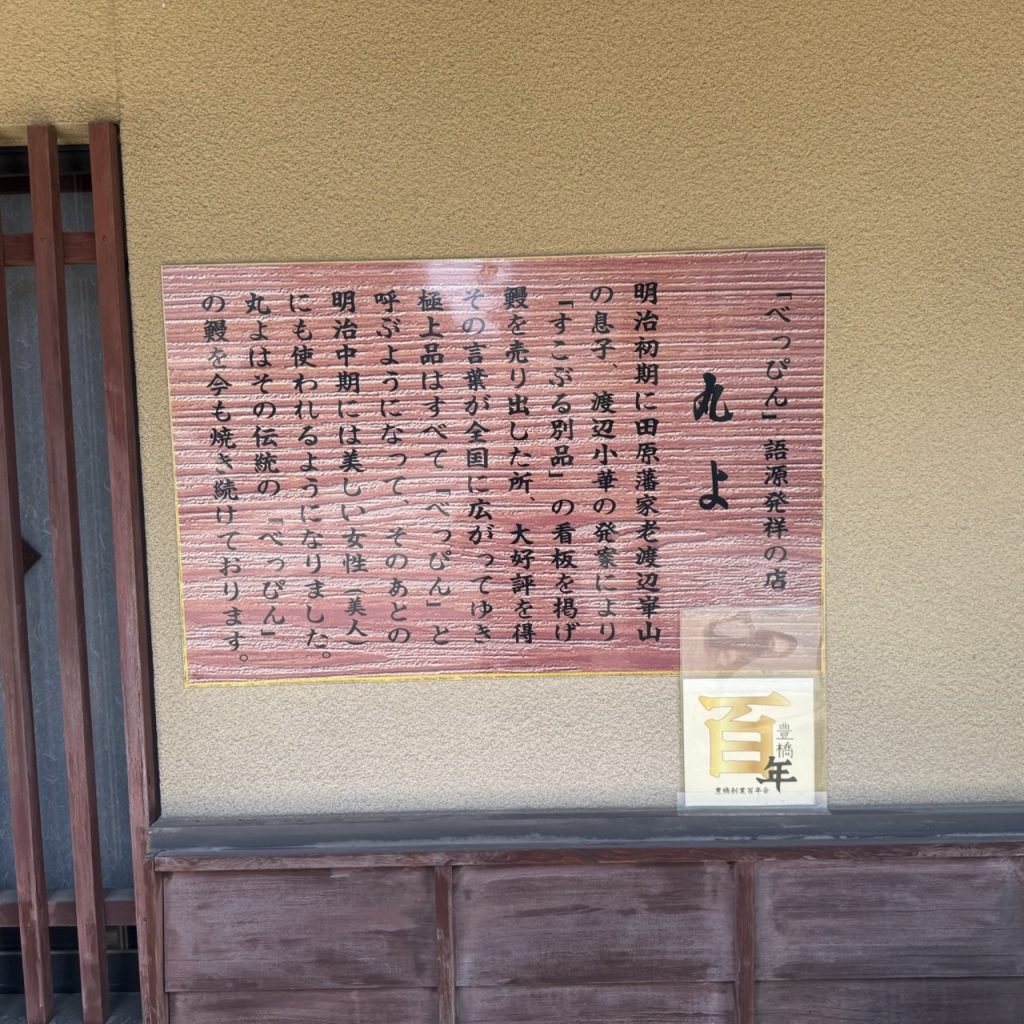 「べっぴん」語源発祥の店
丸よ
明治初期に田原藩家老渡辺崋山
の息子、渡辺小華の発案により
「すこぶる別品」の看板を掲げ
鰻を売り出した所、大好評を得
その言葉が全国に広がってゆき
極上品はすべて「べっぴん」と
呼ぶようになって、そのあとの
明治中期には美しい女性（美人）
にも使われるようになりました。
丸よはその伝統の「べっぴん」
の鰻を今も焼き続けております。
豊橋
百年
豊橋創業百年会